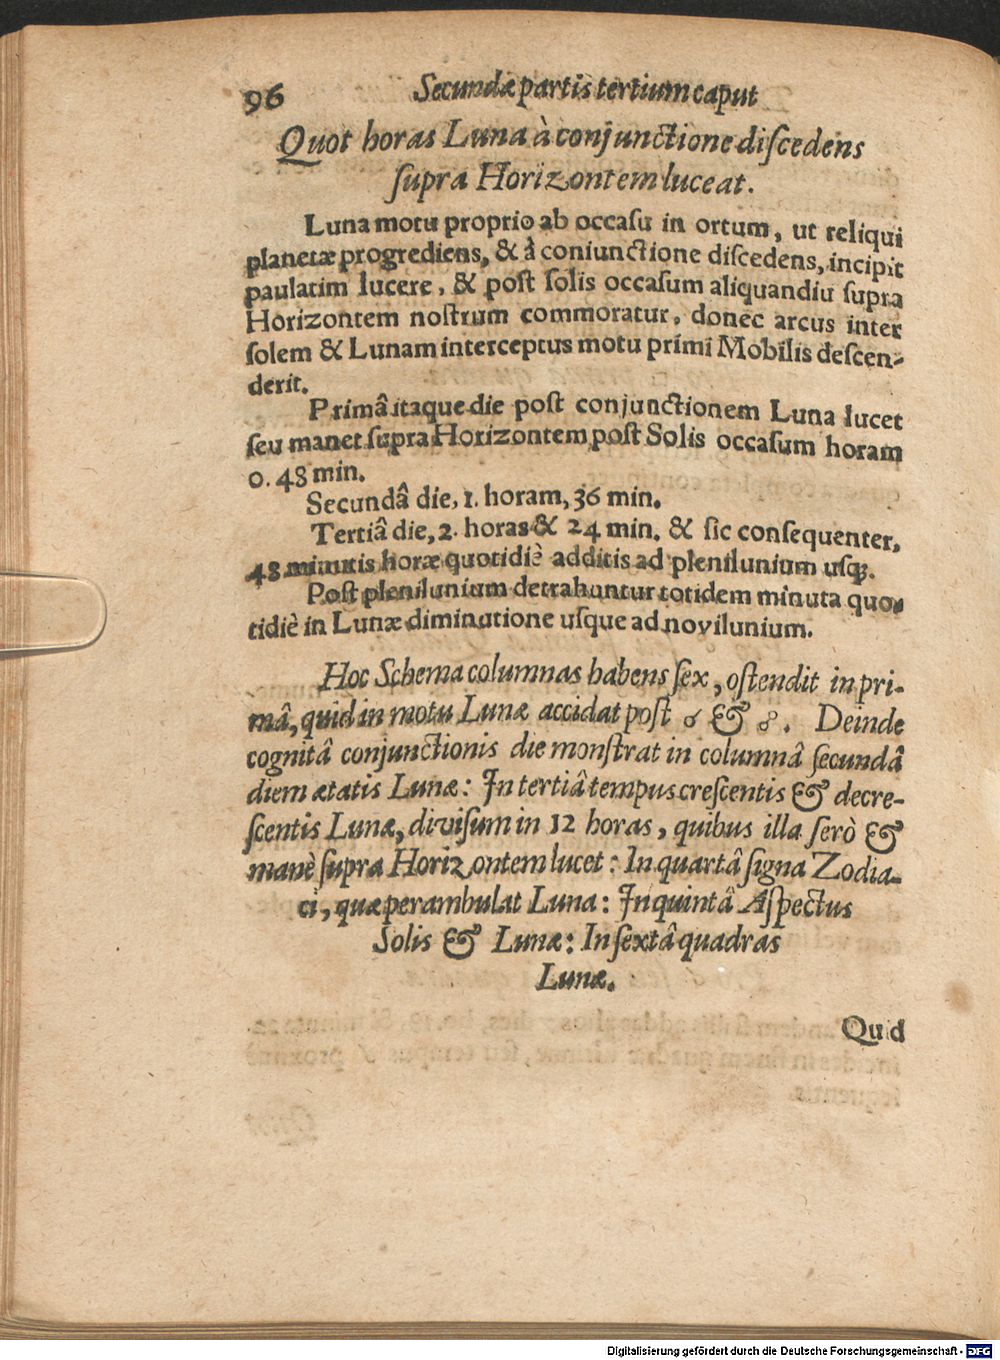 96 Secundæ partis tertium caput
Quot horas Luna à conjunctione diſcedens
ſupra Horizontem luceat.
Luna motu proprio ab occaſu in ortum, ut reliqui
planetæ progrediens, & à coniunctione diſcedens, incipit
paulatim lucere, & poſt ſolis occaſum aliquandiu ſupra
Horizontem noſtrum commoratur, donec arcus inter
ſolem & Lunam interceptus motu primi Mobilis deſcen-
derit.
Primâ itaque die poſt conjunctionem Luna lucet
ſeu manet ſupra Horizontem poſt Solis occaſum horam
0. 48 min.
Secundâ die, 1. horam, 36 min.
Tertiâ die, 2. horas & 24 min. & ſic conſequenter,
48 minutis horæ quotidiè additis ad plenilunium uſq;.
Poſt plenilunium detrahuntur totidem minuta quo-
tidiè in Lunæ diminutione uſque ad novilunium.
Hoc Schema columnas habens ſex, oſtendit in pri-
mâ, quid in motu Lunæ accidat poſt ☌ & ☍. Deinde
cognitâ conjunctionis die monſtrat in columnâ ſecundâ
diem ætatis Lunæ: In tertiâ tempus creſcentis & decre-
ſcentis Lunæ, diviſum in 12 horas, quibus illa ſerò &
manè ſupra Horizontem lucet: In quartâ ſigna Zodia-
ci, quæ perambulat Luna: In quintâ Aſpectus
Solis & Lunæ: In ſextâ quadras
Lunæ.
Quid
Digitalisierung gefördert durch die Deutsche Forschungsgemeinschaft - DFG